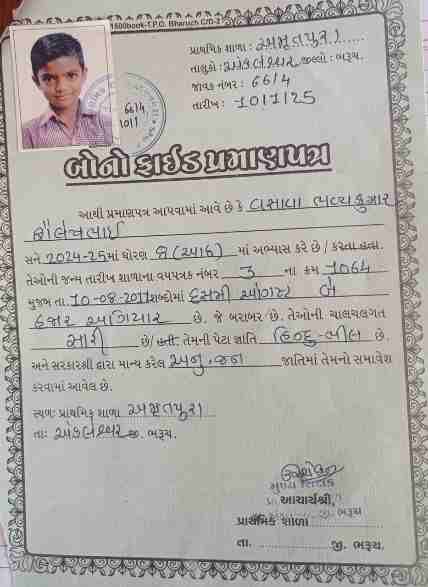 1500book-T.P.O. Bharuch Cm-2
પ્રાથમિક શાળા : અમૃતપુરા
તાલુકો : અંકલેશ્વર જીલ્લો : ભરૂચ.
જાવક નંબર : 66/4
તારીખ : 10/1/25
66/4
10/1
બોનો ફાઈડ પ્રમાણપત્ર
આથી પ્રમાણપત્ર આપવામાં આવે છે કે વસાવા ભવ્યકુમાર
શૈલેષભાઈ
સને 2024-25માં ધોરણ 8 (આઠ) માં અભ્યાસ કરે છે / કરતા હતા.
તેઓની જન્મ તારીખ શાળાના વયપત્રક નંબર 3 ના ક્રમ 1064
મુજબ તા. 10-08-2011 શબ્દોમાં દસમી ઓગષ્ટ બે
હજાર અગિયાર છે. જે બરાબર છે. તેઓની ચાલચલગત
સારી છે/હતી. તેમની પેટા જ્ઞાતિ હિન્દુ-ભીલ છે.
અને સરકારશ્રી દ્વારા માન્ય કરેલ અનુ.જન જાતિમાં તેમનો સમાવેશ
કરવામાં આવેલ છે.
સ્થળ: પ્રાથમિક શાળા અમૃતપુરા
તા: અંકલેશ્વર જી. ભરૂચ.
મુખ્ય શિક્ષક
આચાર્યશ્રી,
જી. ભરૂચ
પ્રાથમિક શાળા
તા. જી. ભરૂચ.